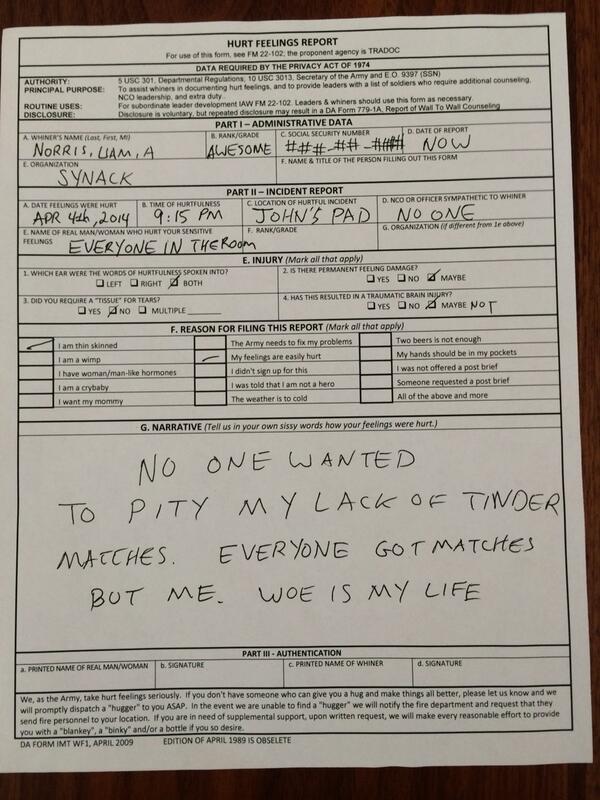 HURT FEELINGS REPORT
For use of this form, see FM 22-102; the proponent agency is TRADOC
DATA REQUIRED BY THE PRIVACY ACT OF 1974
AUTHORITY: 5 USC 301, Departmental Regulations, 10 USC 3013, Secretary of the Army and E.O. 9397 (SSN)
PRINCIPAL PURPOSE: To assist whiners in documenting hurt feelings, and to provide leaders with a list of soldiers who require additional counseling,
NCO leadership, and extra duty.
ROUTINE USES: For subordinate leader development IAW FM 22-102. Leaders & whiners should use this form as necessary.
DISCLOSURE: Disclosure is voluntary, but repeated disclosure may result in a DA Form 779-1A, Report of Wall To Wall Counseling
PART I – ADMINISTRATIVE DATA
A. WHINER'S NAME (Last, First, MI) B. RANK/GRADE C. SOCIAL SECURITY NUMBER D. DATE OF REPORT
NORRIS, LIAM, A AWESOME ###-##-#### NOW
E. ORGANIZATION F. NAME & TITLE OF THE PERSON FILLING OUT THIS FORM
SYNACK
PART II – INCIDENT REPORT
A. DATE FEELINGS WERE HURT B. TIME OF HURTFULNESS C. LOCATION OF HURTFUL INCIDENT D. NCO OR OFFICER SYMPATHETIC TO WHINER
APR 4th, 2014 9:15 PM JOHN'S PAD NO ONE
E. NAME OF REAL MAN/WOMAN WHO HURT YOUR SENSITIVE F. RANK/GRADE G. ORGANIZATION (if different from 1e above)
FEELINGS EVERYONE IN THE ROOM
E. INJURY (Mark all that apply)
1. WHICH EAR WERE THE WORDS OF HURTFULNESS SPOKEN INTO? 2. IS THERE PERMANENT FEELING DAMAGE?
☐ LEFT ☐ RIGHT ☑ BOTH ☐ YES ☐ NO ☑ MAYBE
3. DID YOU REQUIRE A "TISSUE" FOR TEARS? 4. HAS THIS RESULTED IN A TRAUMATIC BRAIN INJURY?
☐ YES ☑ NO ☐ MULTIPLE ______ ☐ YES ☐ NO ☑ MAYBE NOT
F. REASON FOR FILING THIS REPORT (Mark all that apply)
I am thin skinned The Army needs to fix my problems Two beers is not enough
I am a wimp My feelings are easily hurt My hands should be in my pockets
I have woman/man-like hormones I didn't sign up for this I was not offered a post brief
I am a crybaby I was told that I am not a hero Someone requested a post brief
I want my mommy The weather is to cold All of the above and more
G. NARRATIVE (Tell us in your own sissy words how your feelings were hurt.)
NO ONE WANTED
TO PITY MY LACK OF TINDER
MATCHES. EVERYONE GOT MATCHES
BUT ME. WOE IS MY LIFE
PART III - AUTHENTICATION
a. PRINTED NAME OF REAL MAN/WOMAN b. SIGNATURE c. PRINTED NAME OF WHINER d. SIGNATURE
We, as the Army, take hurt feelings seriously. If you don't have someone who can give you a hug and make things all better, please let us know and we
will promptly dispatch a "hugger" to you ASAP. In the event we are unable to find a "hugger" we will notify the fire department and request that they
send fire personnel to your location. If you are in need of supplemental support, upon written request, we will make every reasonable effort to provide
you with a "blankey", a "binky" and/or a bottle if you so desire.
DA FORM IMT WF1, APRIL 2009 EDITION OF APRIL 1989 IS OBSELETE